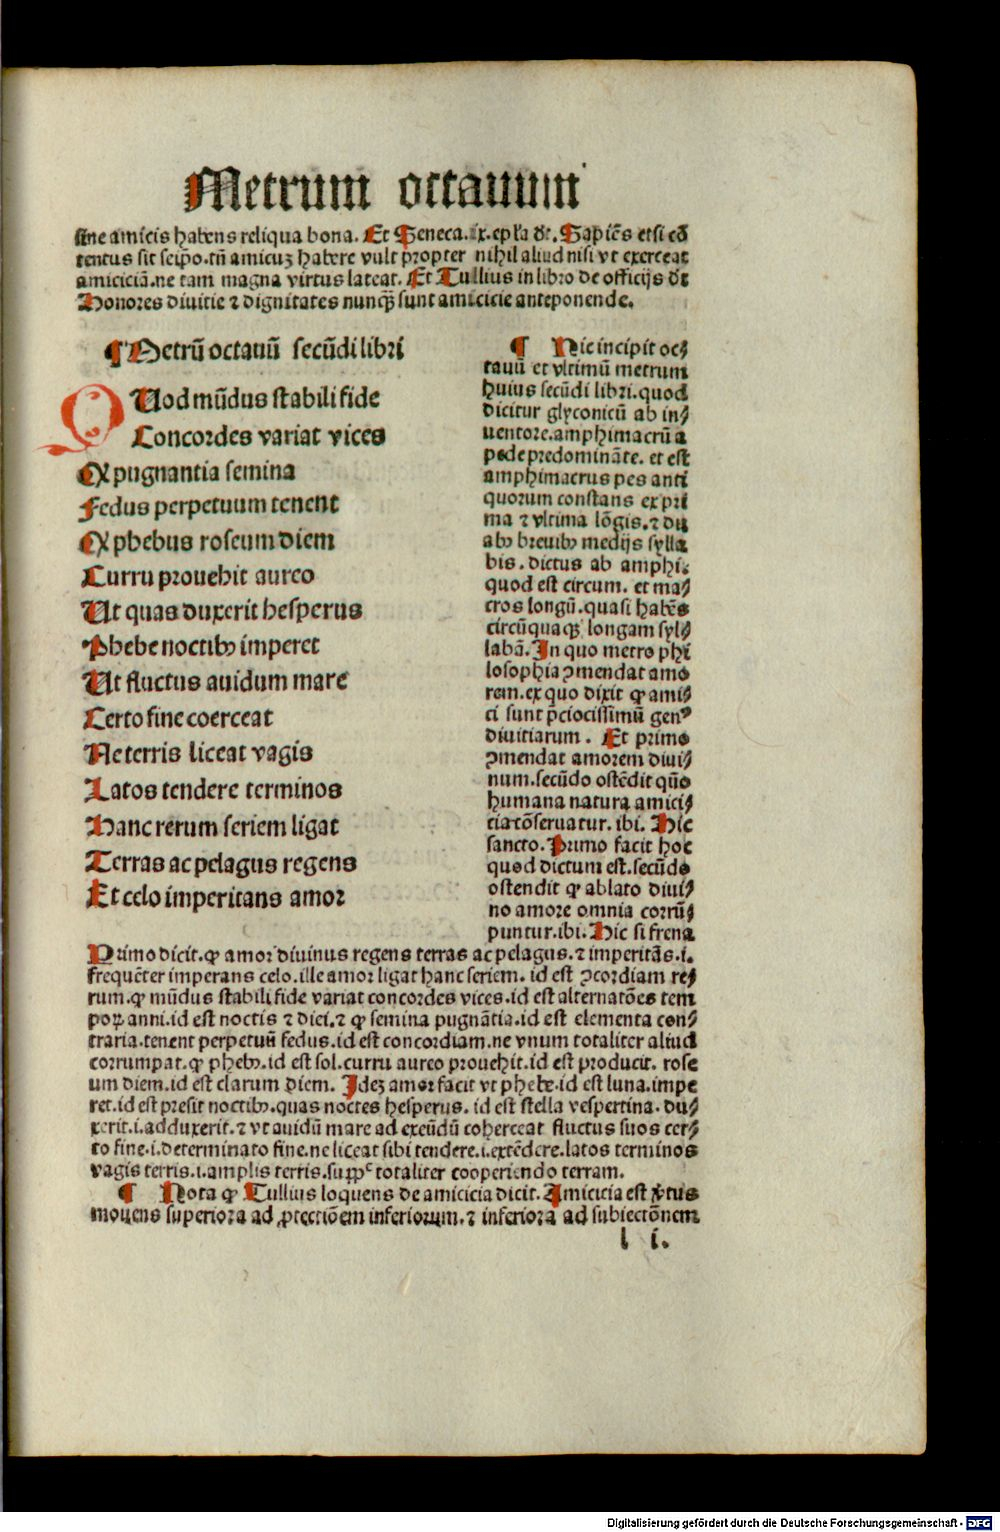 Metrum octauum
sine amicis habens reliqua bona. Et Seneca. ix. epl̕a dr̄. Sapiēs etsi cō
tentus sit seip̄o. tn̄ amicuʒ habere vult propter nihil aliud nisi vt exerceat
amiciciā. ne tam magna virtus lateat. Et Tullius in libro de officijs dr̄
Honores diuitie ⁊ dignitates nunqȝ sunt amicicie anteponende.
¶ Metrū octauū secūdi libri
QUod mūdus stabili fide
Concordes variat vices
Qɔ pugnantia semina
Fedus perpetuum tenent
Qɔ phebus roseum diem
Curru prouehit aureo
Ut quas duxerit hesperus
Phebe noctibꝫ imperet
Ut fluctus auidum mare
Certo fine coerceat
Ne terris liceat vagis
Latos tendere terminos
Hanc rerum seriem ligat
Terras ac pelagus regens
Et celo imperitans amor
¶ Hic incipit oc⸗
tauū et vltimū metrum
huius secūdi libri. quod
dicitur glyconicū ab in⸗
uentore. amphimacrū a
pede predomināte. et est
amphimacrus pes anti
quorum constans ex pri
ma ⁊ vltima lōgis. ⁊ du
abꝫ breuibꝫ medijs sylla
bis. dictus ab amphi.
quod est circum. et ma⸗
cros longū. quasi habēs
circūquaqȝ longam syl⸗
labā. In quo metro phi
losophia ꝯmendat amo
rem. ex quo dixit ꝙ ami⸗
ci sunt p̄ciocissimū genꝰ
diuitiarum. Et primo
ꝯmendat amorem diui⸗
num. secūdo ostēdit quō
humana natura amici⸗
cia cōseruatur. ibi. Hic
sancto. Primo facit hoc
quod dictum est. secūdo
ostendit ꝙ ablato diui⸗
no amore omnia corrū⸗
puntur. ibi. Hic si frena
Primo dicit. ꝙ amor diuinus regens terras ac pelagus. ⁊ imperitās. i.
frequēter imperans celo. ille amor ligat hanc seriem. id est ꝯcordiam re⸗
rum. ꝙ mūdus stabili fide variat concordes vices. id est alternatōes tem
poꝝ anni. id est noctis ⁊ diei. ⁊ ꝙ semina pugnātia. id est elementa con⸗
traria. tenent perpetuū fedus. id est concordiam. ne vnum totaliter aliud
corrumpat. ꝙ phebꝫ. id est sol. curru aureo prouehit. id est producit. rose
um diem. id est clarum diem. Ideʒ amor facit vt phebe. id est luna. impe
ret. id est presit noctibꝫ. quas noctes hesperus. id est stella vespertina. du⸗
xerit. i. adduxerit. ⁊ vt auidū mare ad exeūdū coherceat fluctus suos cer⸗
to fine. i. determinato fine. ne liceat sibi tendere. i. extēdere. latos terminos
vagis terris. i. amplis terris. suꝑ totaliter cooperiendo terram.
¶ Nota ꝙ Tullius loquens de amicicia dicit. Amicicia est v̕tus
mouens superiora ad ꝓtectiōem inferiorum. ⁊ inferiora ad subiectōnem
l i.
Digitalisierung gefördert durch die Deutsche Forschungsgemeinschaft - DFG